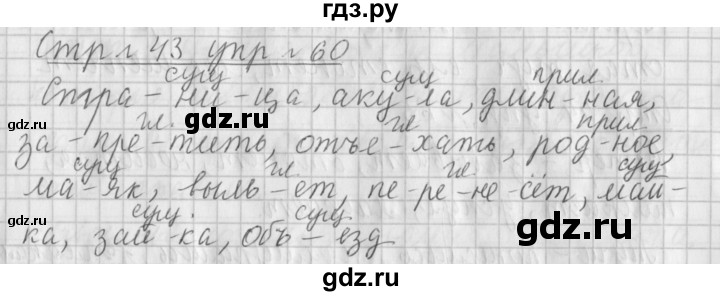 гдз.ру
Стр № 43 упр № 60
сущ сущ прил.
Стра-ни-ца, аку-ла, длин-ная,
гл. гл прил
за-пре-тить, отъе-хать, род-ное,
сущ гл. гл. сущ.
ма-як, выль-ет, пе-ре-не-сёт, май-
сущ. сущ.
ка, зай-ка, объ-езд
gdz.ru gdz.ru
gdz.ru gdz.ru
gdz.ru gdz.ru
gdz.ru
gdz.ru